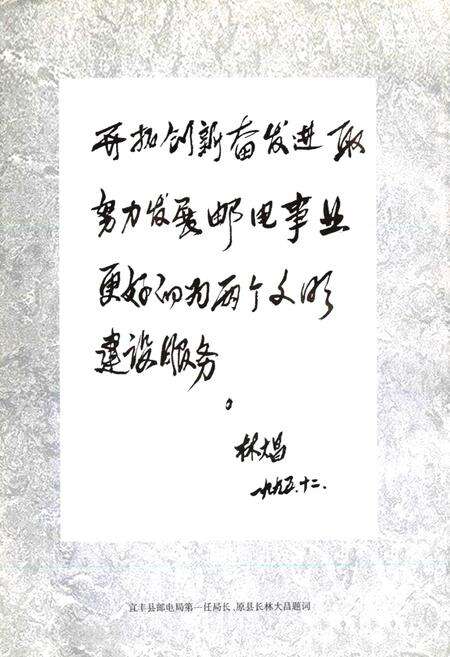 开拓创新奋发进取
努力发展邮电事业
更好的为两个文明
建设服务
。
林大昌
一九九五.十二.
宜丰县邮电局第一任局长、原县长林大昌题词